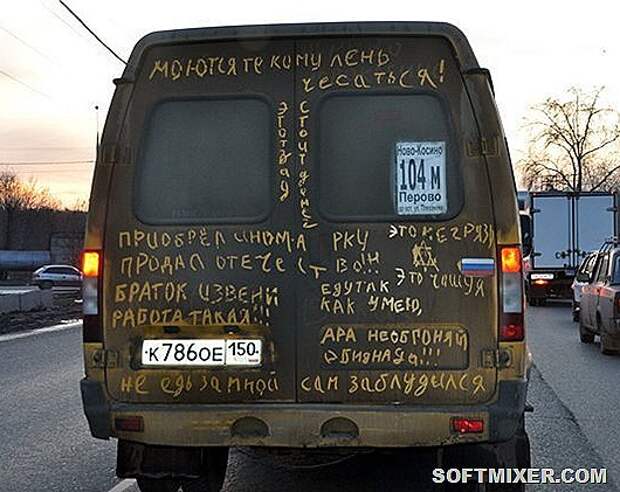 моются те кому лень
чесаться!
этот зад
стоит денег
Ново-Косино
104 м
Перово
приобрёл иномарку
продал отечество!!!
это не грязь
это чащуя
браток извени
работа такая!!!
еду так
как умею,
ара необгоняй
обиянада!!!
К786ОЕ 150
не едь за мной сам заблудился
SOFTMIXER.COM